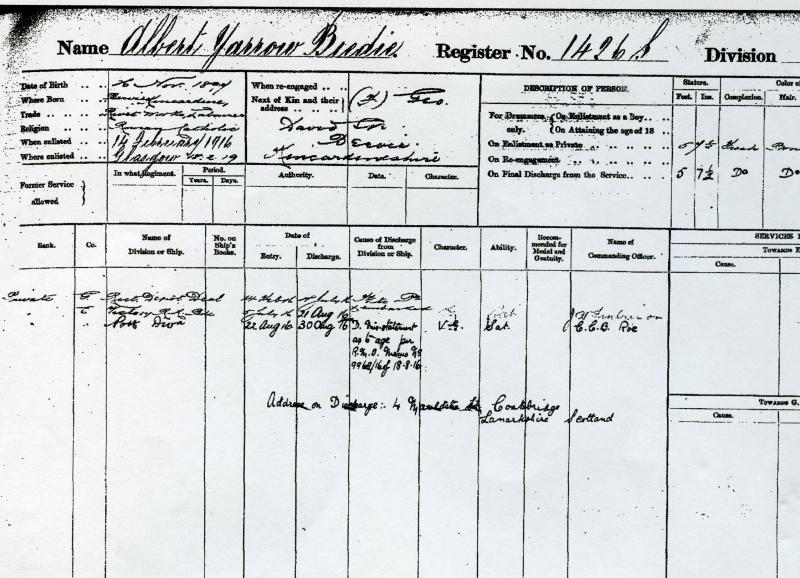 Name Albert Yarrow Brodie Register No. 1426 S Division
Date of Birth Nov. 18
Where Born Kincardine
Trade Works Labourer
Religion Roman Catholic
When enlisted 14 February 1916
Where enlisted Glasgow 15.2.19
Former Service allowed
In what Regiment. Period. Years. Days.
When re-engaged
Next of Kin and their address (F) Geo.
David St.
Bervie
Kincardineshire
Authority. Date. Character.
DESCRIPTION OF PERSON.
Stature. Color of
Feet. Ins. Complexion. Hair.
For Drummers only. On Enlistment as a Boy
On Attaining the age of 18
On Enlistment as Private 5 7½ Fresh
On Re-engagement
On Final Discharge from the Service 5 7½ Do Do
Rank. Co. Name of Division or Ship. No. on Ship's Books. Date of Entry. Discharge. Cause of Discharge from Division or Ship. Character. Ability. Recommended for Medal and Gratuity. Name of Commanding Officer.
SERVICES
TOWARDS
Cause.
Private Rect. Depot Deal 14 Feb 16 July 16
" C July 16 21 Aug 16
" " Ports Divn 22 Aug 16 30 Aug 16 D. Mis-statement V.G. Sat. C.C.B. Roe
as to age per
R.M.O. Memo No
9968/16 of 18-8-16
Address on Discharge:- 4 St, Coatbridge
Lanarkshire Scotland
TOWARDS G.
Cause.